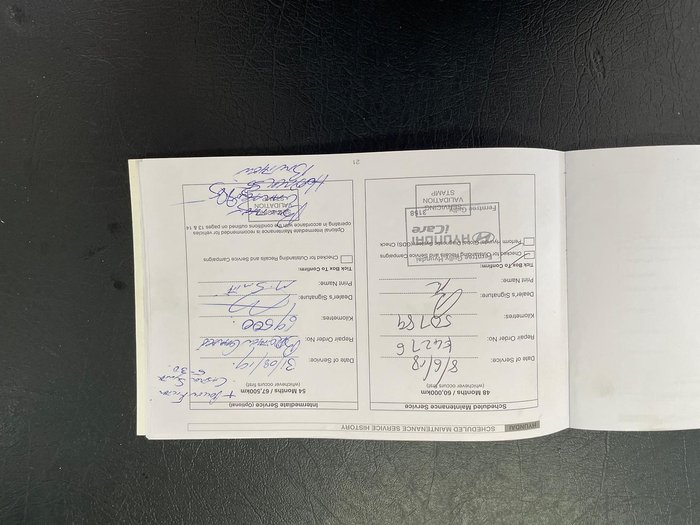 HYUNDAI SCHEDULED MAINTENANCE SERVICE HISTORY
Scheduled Maintenance Service
48 Months / 60,000km
(whichever occurs first)
Date of Service: 8/6/18
Repair Order No: E4276
Kilometres: 50789
Dealer's Signature:
Print Name:
Tick Box To Confirm:
Checked for Outstanding Recalls and Service Campaigns
Perform Hyundai Global Diagnostic System (GDS) Check
Ferntree Gully Hyundai
HYUNDAI
iCare
Ferntree Gully
3156
SERVICING
VALIDATION
STAMP
Intermediate Service (Optional)
54 Months / 67,500km
(whichever occurs first)
Date of Service: 31/08/19.
Repair Order No:
Kilometres: 69500.
Dealer's Signature:
Print Name: M. Smith
Tick Box To Confirm:
Checked Outstanding Recalls and Service Campaigns
Optional Intermediate Maintenance is recommended for vehicles
operating in accordance with the conditions outlined on pages 13 14
VALIDATION
21